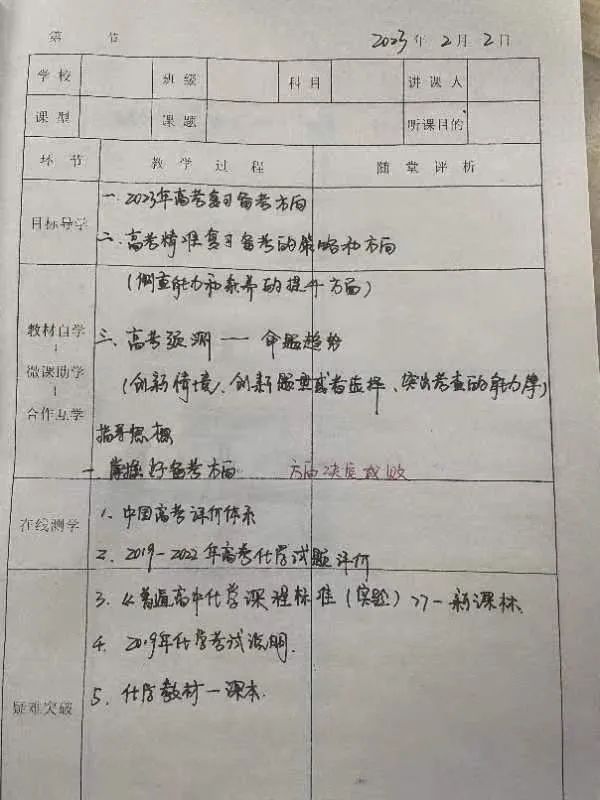 第 节 2023年 2月 2日
学校 班级 科目 讲课人
课型 课题 听课目的
环节 教学过程 随堂评析
目标导学
一. 2023年高考复习备考方向
二. 高考精准复习备考的策略和方向
(侧重能力和素养的提升方面)
教材自学
↓
微课助学
↓
合作互学
三. 高考预测 —— 命题趋势
(创新情境、创新题型或者选择、突出考查的能力等)
指导思想
一 掌握好备考方向 方向决定成败
在线测学
1. 中国高考评价体系
2. 2019-2022年高考化学试题评价
3. 《普通高中化学课程标准(实验)》—新课标
4. 2019年化学考试说明.
疑难突破
5. 化学教材—课本.